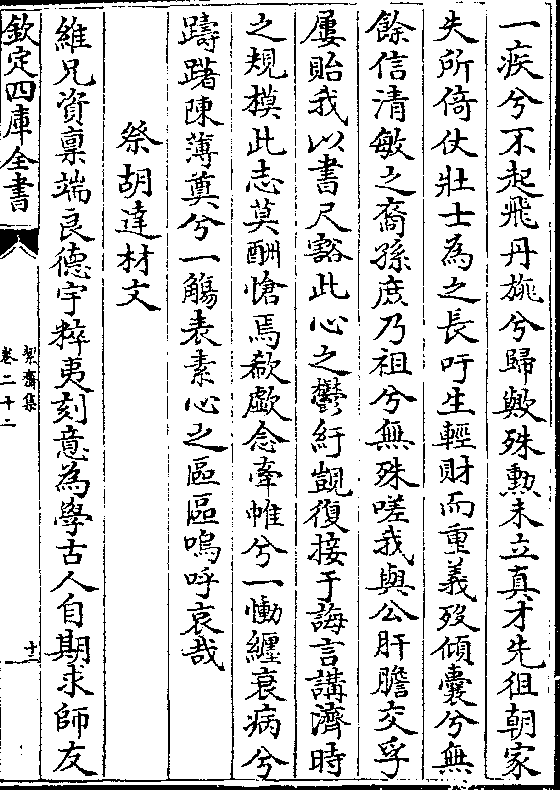 一疾兮不起飛丹旐兮歸歟殊勲未立真才先徂朝家
失所倚仗壯士為之長吁生輕財而重義歿傾囊兮無
餘信清敏之裔孫庶乃祖兮無殊嗟我與公肝膽交孚
屢貽我以書尺豁此心之鬱紆覬復接于誨言講濟時
之規模此志莫酬愴焉欷歔念牽帷兮一慟纏衰病兮
躊躇陳薄奠兮一觴表素心之區區嗚呼哀哉
祭胡達材文
維兄資稟端良德宇粹夷刻意為學古人自期求師友
欽定四庫全書
絜齋集
卷二十二
十三